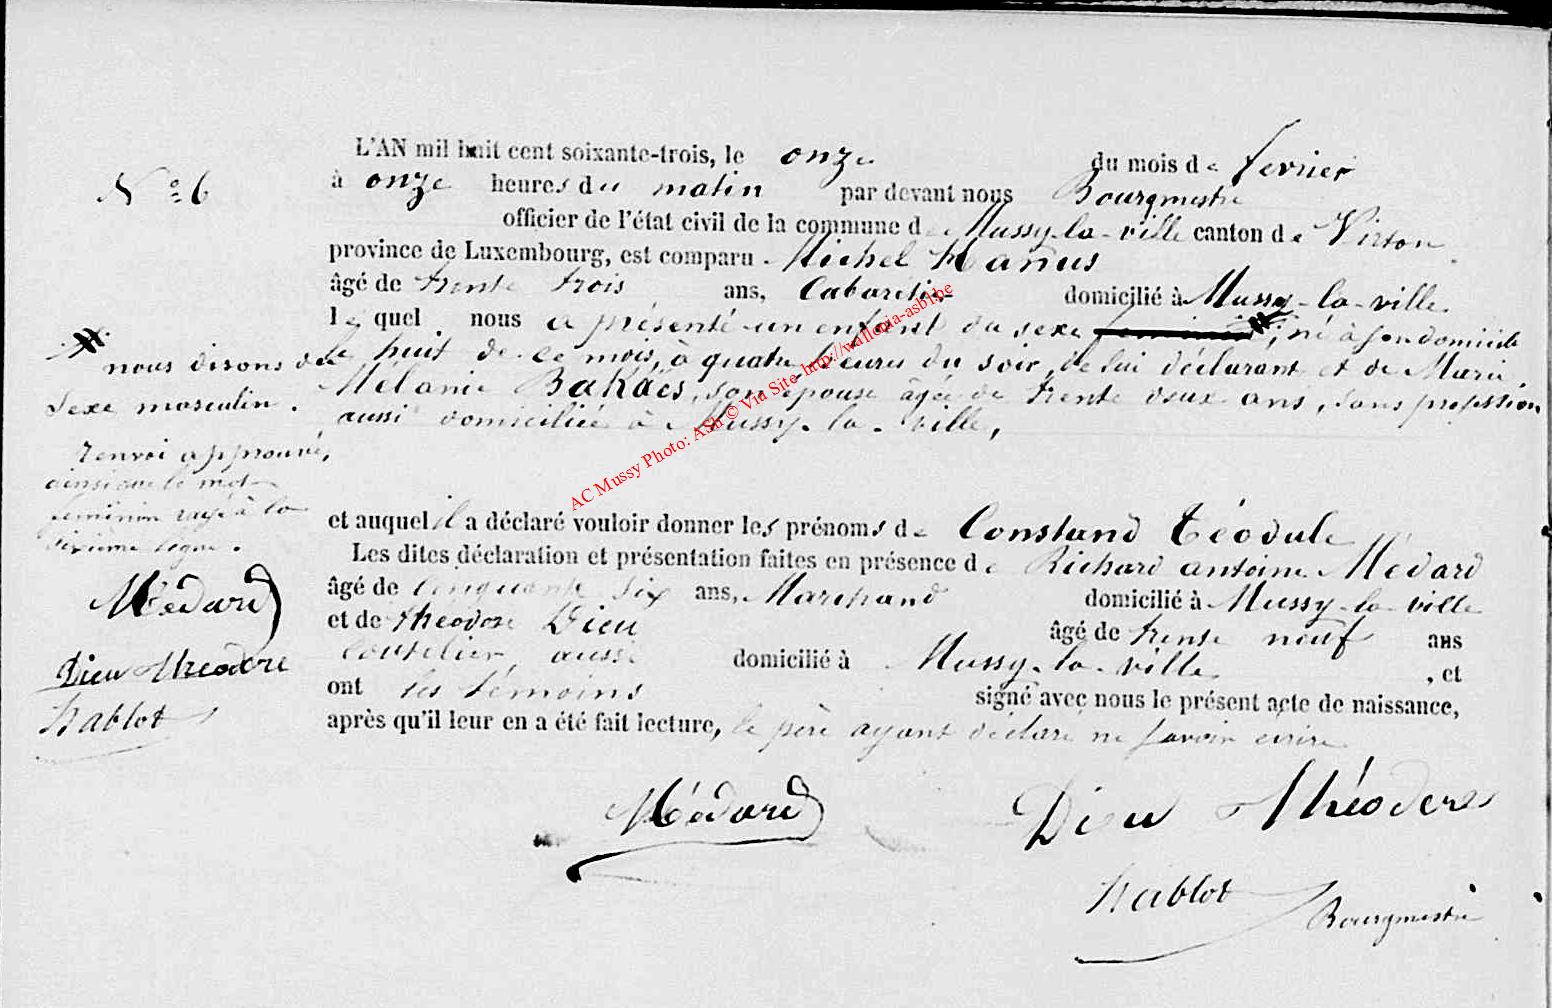 N° 6
L'AN mil huit cent soixante-trois, le onze du mois de fevrier
à onze heures du matin par devant nous Bourgmestre
officier de l'état civil de la commune de Mussy-la-ville canton de Virton
province de Luxembourg, est comparu Michel Manus
âgé de trente trois ans, Cabaretier domicilié à Mussy-la-ville
lequel nous a présenté un enfant du sexe feminin #, né à son domicile
le huit de ce mois, à quatre heures du soir, de lui déclarant et de Marie
Mélanie son épouse âgée de trente deux ans, sans profession
aussi domiciliée à Mussy-la-ville,
et auquel il a déclaré vouloir donner les prénoms de Constand Téodule
Les dites déclaration et présentation faites en présence de Richard antoine Médard
âgé de cinquante six ans, Marchand domicilié à Mussy-la-ville
et de théodore Dieu âgé de trente neuf ans
coutelier, aussi domicilié à Mussy-la-ville, et
ont les témoins signé avec nous le présent acte de naissance,
après qu'il leur en a été fait lecture, le père ayant déclaré ne savoir écrire
# nous disons du
sexe masculin.
renvoi approuvé,
ainsi que le mot
feminin rayé à la
sixieme ligne.
Médard
Dieu théodore
Hablot
Médard
Dieu Théodore
Hablot
Bourgmestre
AC Mussy Photo: ASh © Via Site http://wallonia-asbl.be